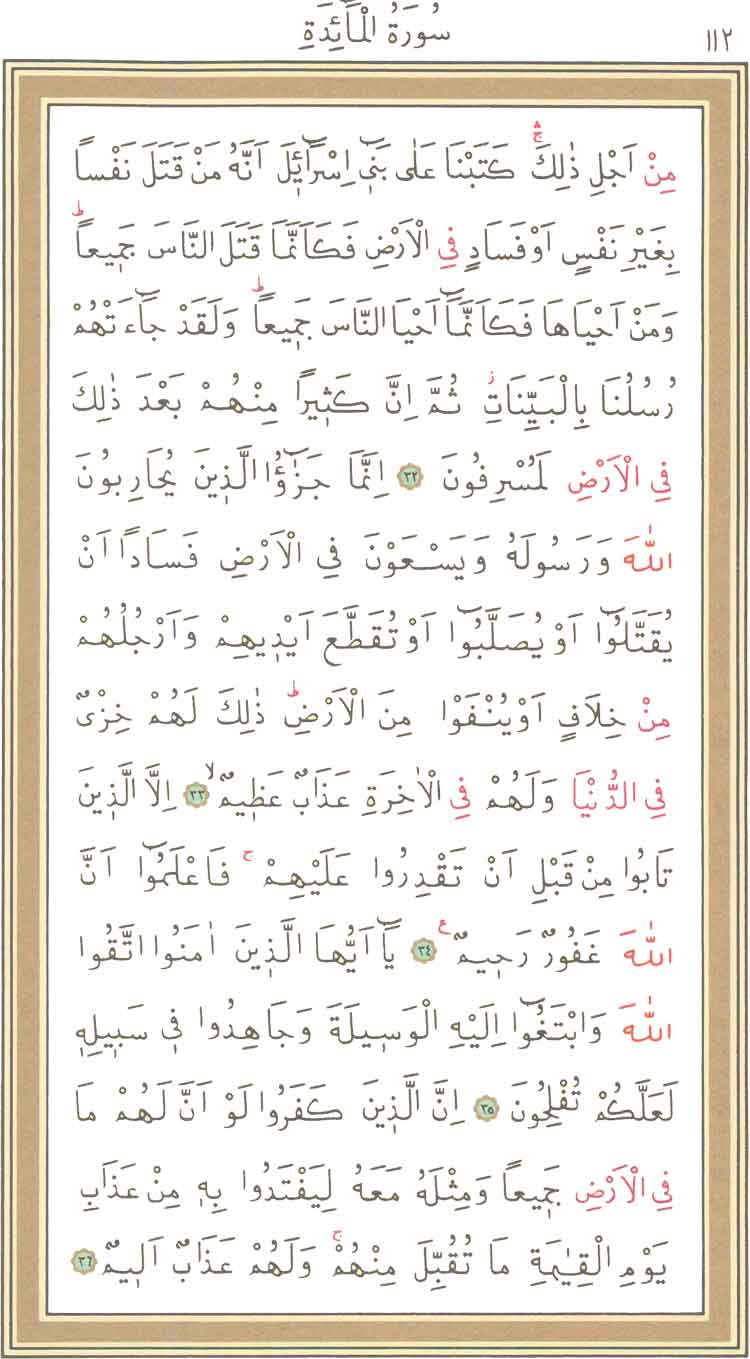 ١١٢
سُورَةُ الْمَٓائِدَةِ
مِنْ اَجْلِ ذٰلِكَۚۛ كَتَبْنَا عَلٰى بَن۪ٓي اِسْرَٓائ۪لَ اَنَّهُ مَنْ قَتَلَ نَفْساً
بِغَيْرِ نَفْسٍ اَوْ فَسَادٍ فِي الْاَرْضِ فَكَاَنَّمَا قَتَلَ النَّاسَ جَم۪يعاًۜ
وَمَنْ اَحْيَاهَا فَكَاَنَّمَٓا اَحْيَا النَّاسَ جَم۪يعاًۜ وَلَقَدْ جَٓاءَتْهُمْ
رُسُلُنَا بِالْبَيِّنَاتِۘ ثُمَّ اِنَّ كَث۪يراً مِنْهُمْ بَعْدَ ذٰلِكَ
فِي الْاَرْضِ لَمُسْرِفُونَ ﴿٣٢﴾ اِنَّمَا جَزٰٓؤُا الَّذ۪ينَ يُحَارِبُونَ
اللّٰهَ وَرَسُولَهُ وَيَسْعَوْنَ فِي الْاَرْضِ فَسَاداً اَنْ
يُقَتَّلُٓوا اَوْ يُصَلَّبُٓوا اَوْ تُقَطَّعَ اَيْد۪يهِمْ وَاَرْجُلُهُمْ
مِنْ خِلَافٍ اَوْ يُنْفَوْا مِنَ الْاَرْضِۜ ذٰلِكَ لَهُمْ خِزْيٌ
فِي الدُّنْيَا وَلَهُمْ فِي الْاٰخِرَةِ عَذَابٌ عَظ۪يمٌۙ ﴿٣٣﴾ اِلَّا الَّذ۪ينَ
تَابُوا مِنْ قَبْلِ اَنْ تَقْدِرُوا عَلَيْهِمْۚ فَاعْلَمُٓوا اَنَّ
اللّٰهَ غَفُورٌ رَح۪يمٌ۟ ﴿٣٤﴾ يَٓا اَيُّهَا الَّذ۪ينَ اٰمَنُوا اتَّقُوا
اللّٰهَ وَابْتَغُٓوا اِلَيْهِ الْوَس۪يلَةَ وَجَاهِدُوا ف۪ي سَب۪يلِه۪
لَعَلَّكُمْ تُفْلِحُونَ ﴿٣٥﴾ اِنَّ الَّذ۪ينَ كَفَرُوا لَوْ اَنَّ لَهُمْ مَا
فِي الْاَرْضِ جَم۪يعاً وَمِثْلَهُ مَعَهُ لِيَفْتَدُوا بِه۪ مِنْ عَذَابِ
يَوْمِ الْقِيٰمَةِ مَا تُقُبِّلَ مِنْهُمْۚ وَلَهُمْ عَذَابٌ اَل۪يمٌ ﴿٣٦﴾